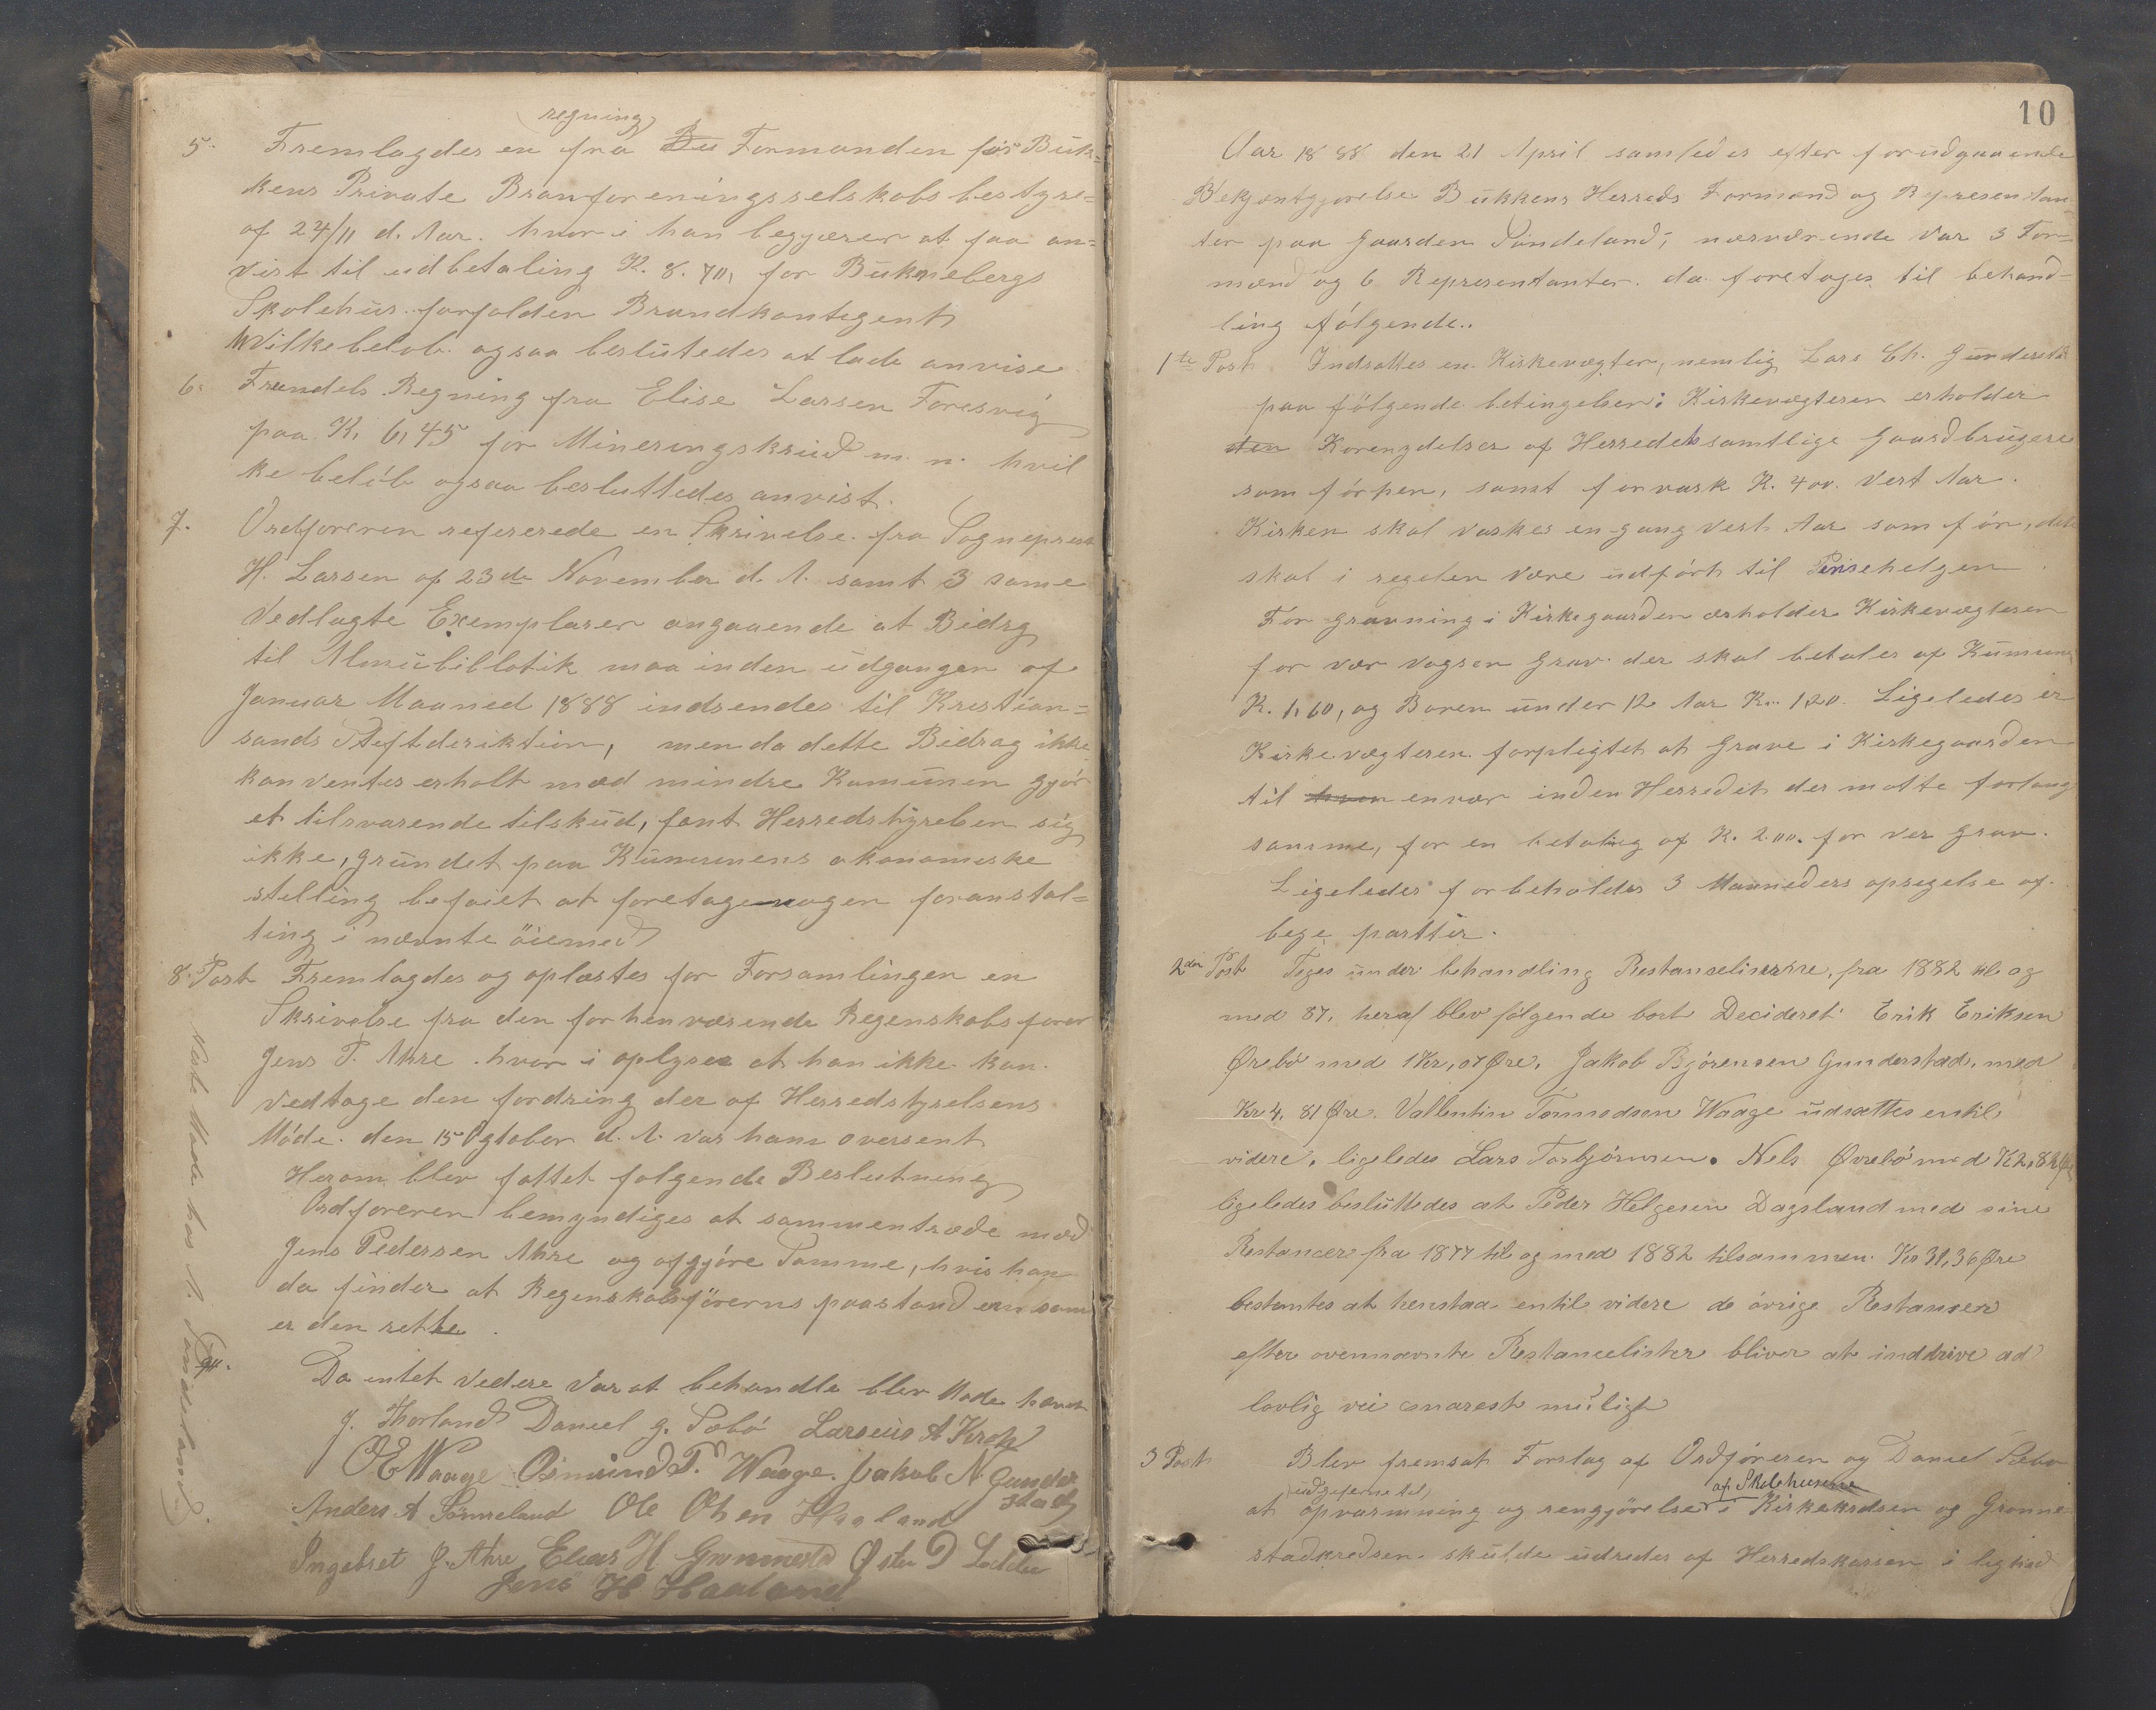 regning
5. Fremlagdes en fra Formanden for Buk=
kens Private Branforeningsselskabs bestyre=
af 24/11 d. Aar. hvor i han begjærer at faa an=
vist til udbetaling K. 8.70, for Buknebergs
Skolehus forfalden Brandkontegent
hvilke beløb ogsaa beslutedes at lade anvise
6. Fremdels Regning fra Elise Larsen Foresvig
paa K. 6,45 for Mineringskrud m. m. hvil
ke beløb ogsaa besluttedes anvist.
7. Ordføreren refererede en Skrivelse fra Sogneprest
H. Larsen af 23de November d. A. samt 3 same
Vedlagte Exemplarer angaaende at Bidrg
til Almubiblotik maa inden udgangen af
Januar Maaned 1888 indsendes til Kristian=
sands Steftderiktion, men da dette Bidrag ikke
kan ventes erholt mæd mindre Kamunen gjør
et tilsvarende tilskud, fant Herredstyrelsen sig
ikke, grundet paa Kumunens økonomiske
stelling beføiet at foretage nogen foranstal=
ting i nævnte öiemed
8. Post Fremlagdes og oplæstes for Forsamlingen en
Skrivelse fra den forhenværende Regenskabsfører
Jens P. Ahre hvor i oplyser at han ikke kan
vedtage den fordring der af Herredstyrelsens
Møde den 15 Ogtober d. A. var ham oversent
Herom blev fattet følgende Beslutning
Ordføreren bemyndiges at sammentræde mæd
Jens Pedersen Ahre og afgjøre Samme, hvis han
da finder at Regenskabsförerens paastand som
er den rette.
Da intet Vedere Var at behandle blev Møde hævet
J. Thorland Daniel G. Sæbø Larseus A Krok
OE Waage Osmund T. Waage. Jakob N Gunder
stad
Anders A Sönneland Ole Olsen Haaland
Ingebret J. Ahre Elias H Grønnestad Østen D Lodden
Jens H Haaland
Neste Møde hos A. Sönneland
10
Aar 1888 den 21 April samledes efter forudgaaende
Bekjentgjørelse Bukkens Herreds Formænd og Representan
ter paa Gaarden Söndeland, nærværende Var 3 For=
mænd og 6 Representanter. da foretoges til behand=
ling følgende..
1ste Post Indsattes en Kirkevægter, nemlig Lars Ch. Gunderstd
paa fölgende betingelser: Kirkevægteren erholder
den Korenydelser af Herredets samtlige Gaardbrugere
som førhen, samt for vask K. 4 00. Vert Aar.
Kirken skal vaskes en gang Vert Aar som før, dette
skal i regelen være udført til Pinsehelgen.
For gravning i Kirkegaarden ærholder Kirkevægteren
for vær Vogsen Grav der skal betales af Kumune
K. 1,60, og Boren under 12 Aar K.. 1 20. Ligeledes er
Kirkevægteren forpligtet at Grave i Kirkegaarden
til enver inden Herredet der motte forlang
samme, for en betaling af K. 2.00. for ver Grav.
Ligeledes forbeholdes 3 Maaneders opsegelse af
bege parttir.
2den Post Toges under behandling Restancelisterne, fra 1882 til og
med 87. heraf blev følgende bort Decideret: Erik Eriksen
Ørebö med 1 Kr, 07 Øre, Jakob Bjørensen Gunderstad, med
Kr 4, 81 Øre. Vallentin Tormodsen Waage udsættes entil
videre, ligeledes Lars Torbjörnsen. Nels Øvrebö med K 2,82 Øre
ligeledes besluttedes at Peder Helgesen Dagsland med sine
Restancer fra 1877 til og med 1882 tilsammen. Kr 31,36 Øre
bestantes at henstaa entil videre de övrige Restanser
efter ovennævnte Restancelister bliver at inddrive ad
lovlig vei snarest muligt
3 Post Blev fremsat Forslag af Ordføreren og Daniel Sæbø
udgifterne til af Skolehusene
at opvarmning og rengjörelse i Kirkekredsen og Grønne
stadkredsen. skulde udredes af Herredskassen i lighed